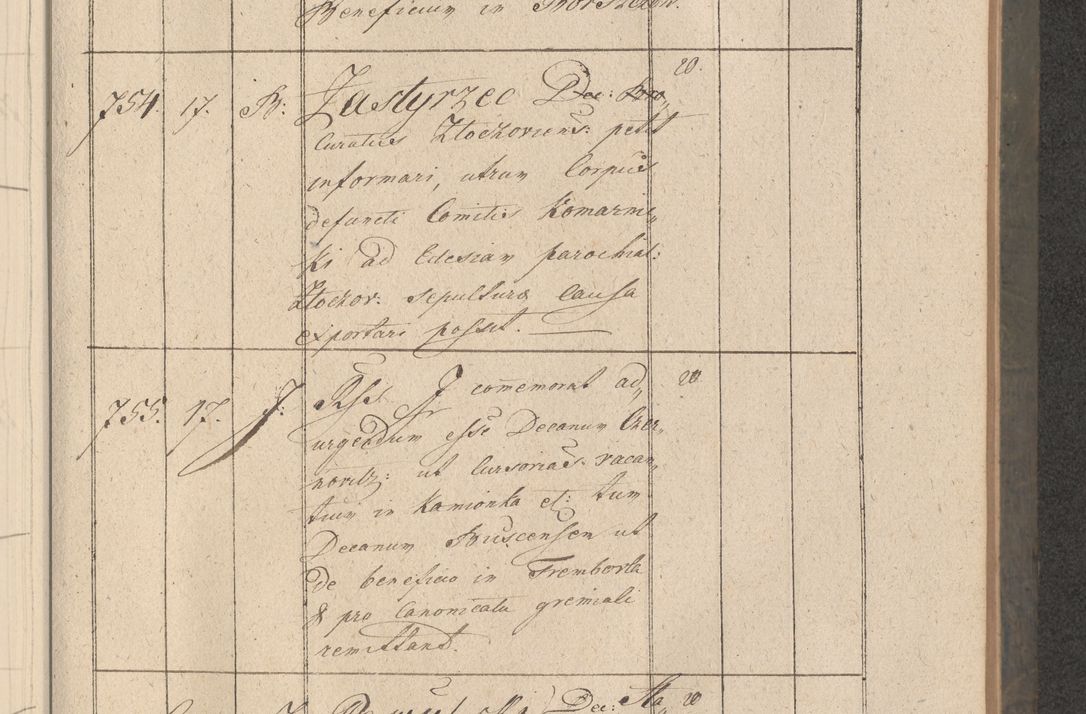 Beneficium in
754. 17. B: Zastyrzec Dec: 20.
Curatus Złoczoviens: petit
informari, utrum Corpus
defuncti Comitis Komarni„
ki ad Eclesiam parochial:
Złoczov: sepulturæ Causa
exportari posset.
755. 17. J: comemorat ad„ 20
urgendum esse Decanum Czer„
novitz: ut Cursorias vacan„
tium in Kamionka et: tum
Decanum Buscensem ut
de beneficio in Trembovla
& pro Canonicatu gremiali
remittant.
Dec: Sta„ 20